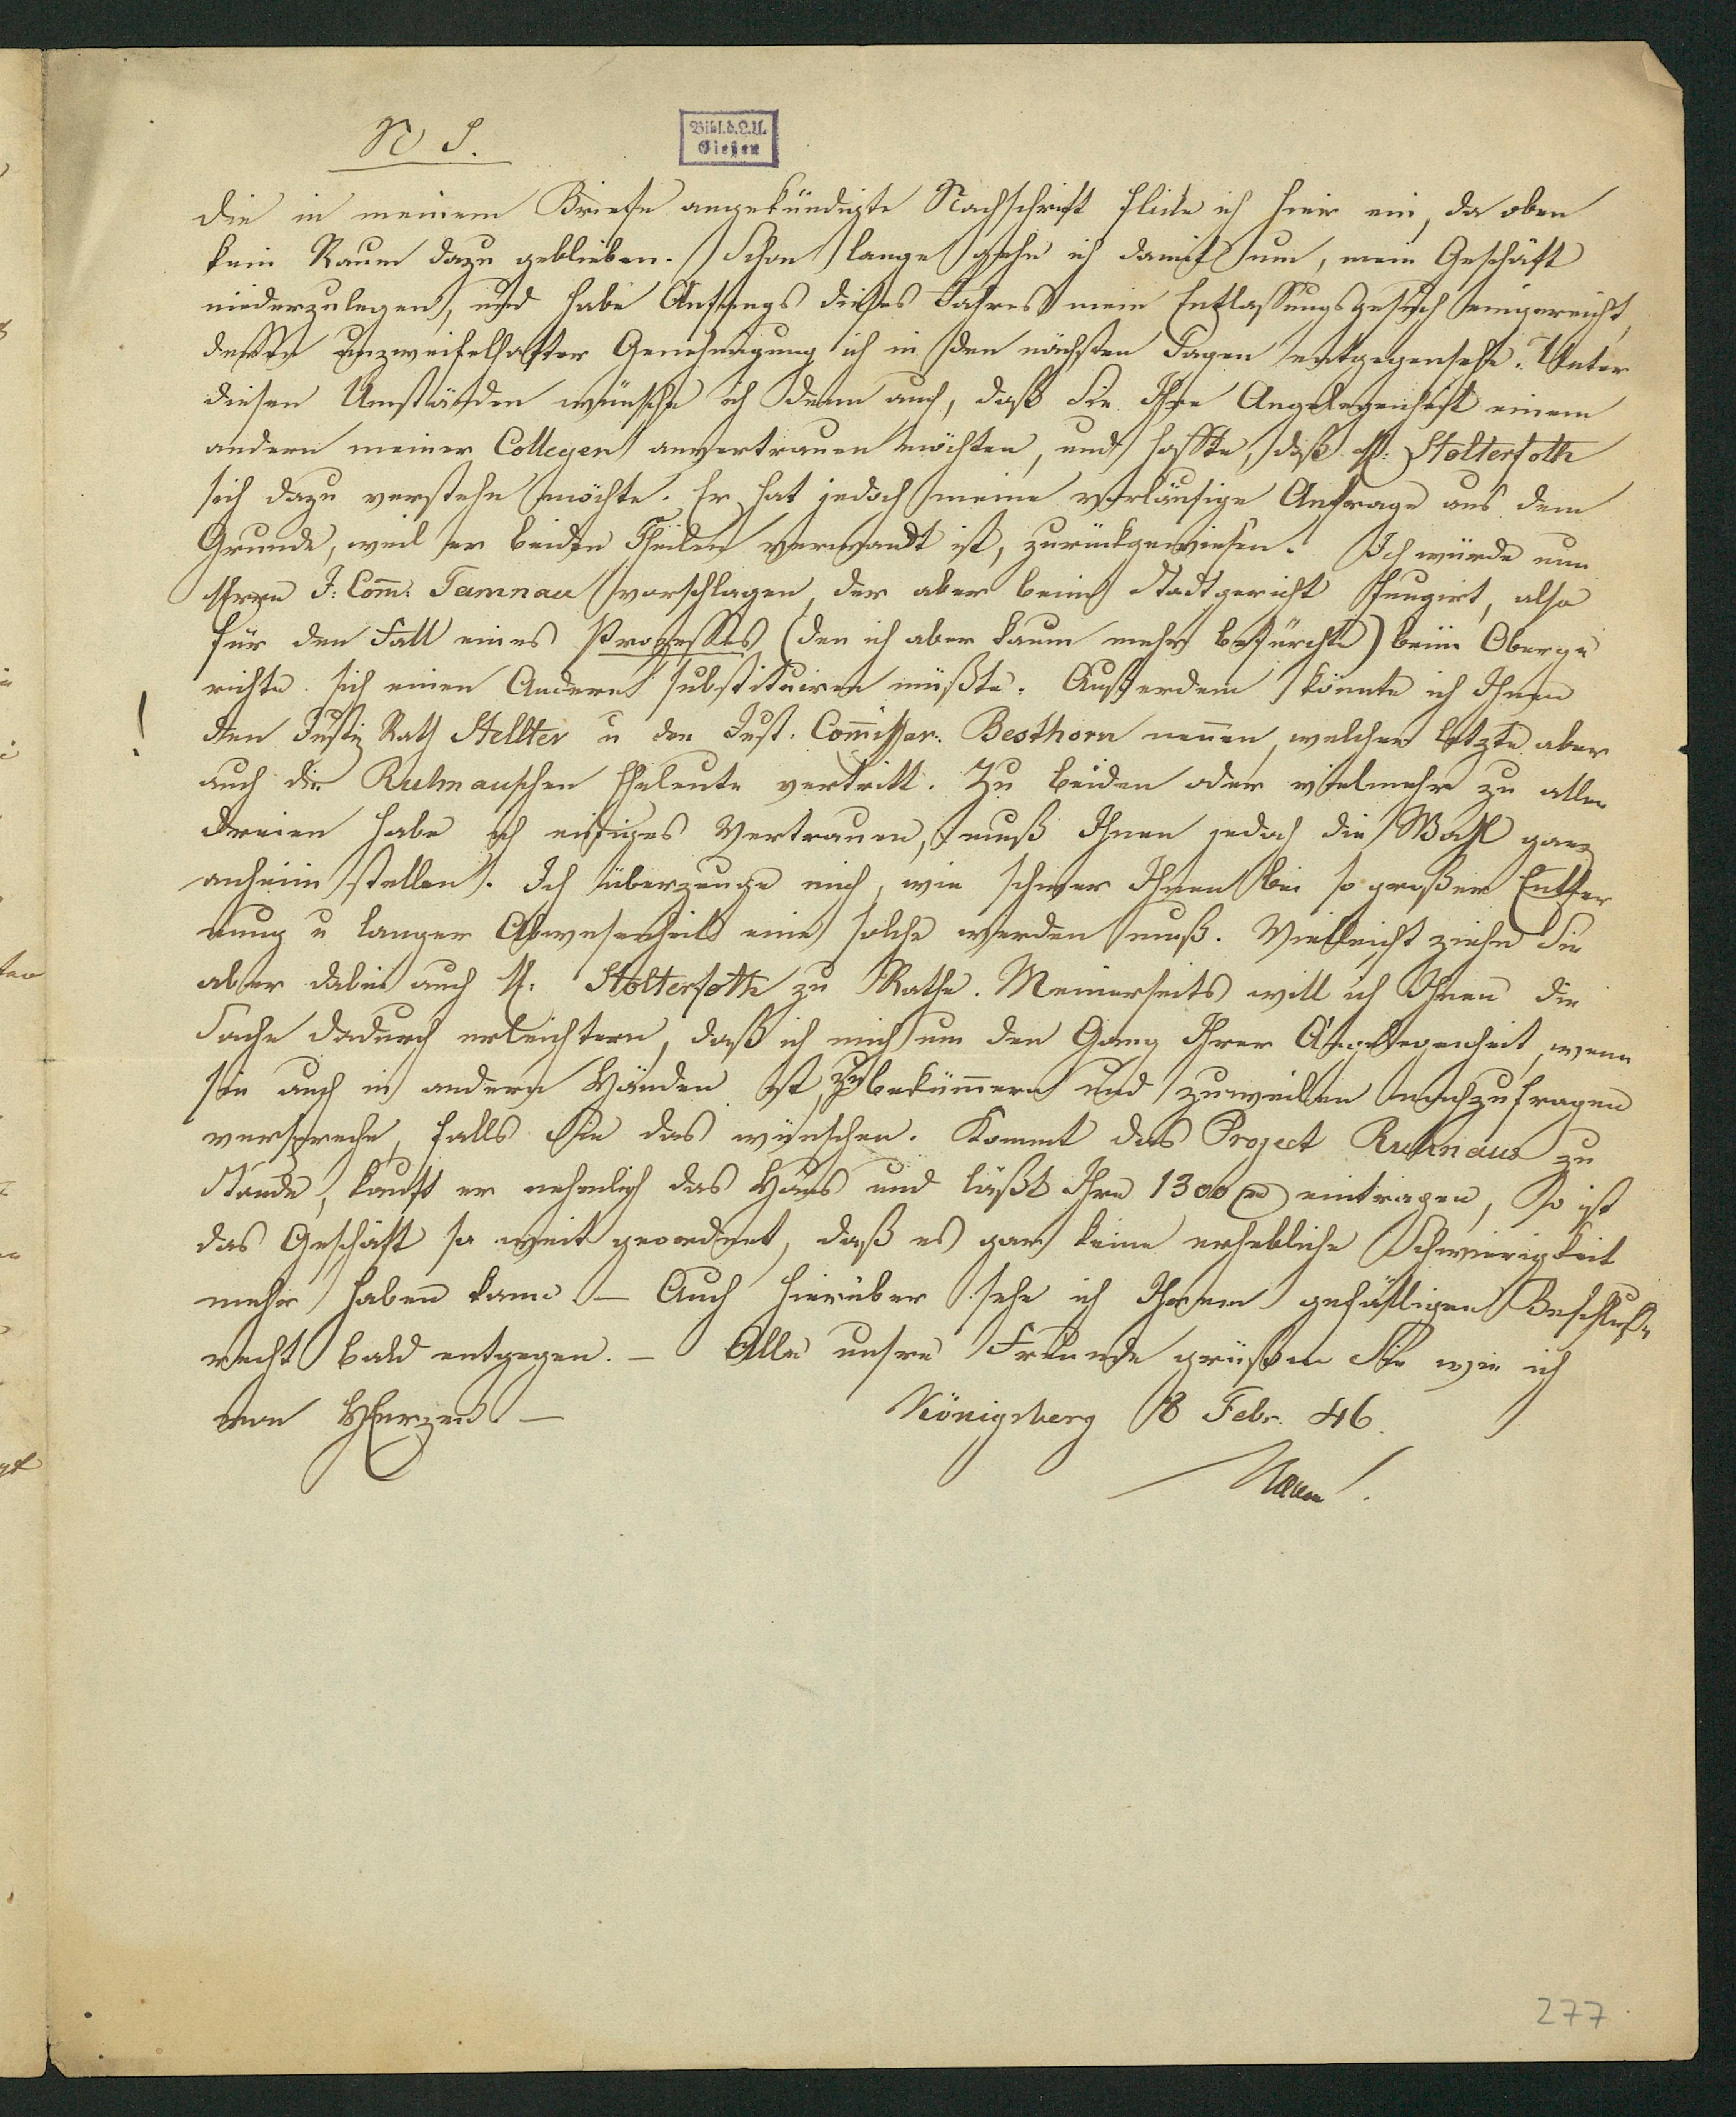 N S.
Bibl. d. L. U.
Gießen
die in meinem Briefe angekündigte Nachschrift flicke ich hier ein, da oben
kein Raum dazu geblieben. Schon lange gehe ich damit um, mein Geschäft
niederzulegen, und habe Anfangs dieses Jahres mein Entlassungsgesuch eingereicht,
dessen unzweifelhafter Genehmigung ich in den nächsten Tagen entgegensehe. Unter
diesen Umständen wünsche ich denn auch, daß Sie Ihre Angelegenheit einem
andern meiner Collegen anvertrauen möchten, und hoffte, daß H: Stolterfoth
sich dazu verstehn möchte. Er hat jedoch meine vorläufige Anfrage aus dem
Grunde, weil er beiden Theilen verwandt ist, zurückgewiesen. Ich würde nun
Herrn J: Com̄: Tamnau vorschlagen, der aber beim Stadtgericht fungirt, also
für den Fall eines Prozesses (den ich aber kaum mehr befürchte) beim Oberge
richte sich einen Andern substituiren müßte. Außerdem könnte ich Ihnen
! den Justiz Rath Stellter u den Just. Com̄issar. Besthorn nennen, welcher letzte aber
auch die Ruhnauschen Eheleute vertritt. Zu beiden oder vielmehr zu allen
dreien habe ich einiges Vertrauen, muß Ihnen jedoch die Wahl ganz
anheim stellen. Ich überzeuge mich, wie schwer Ihnen bei so großer Entfer
nung u langer Abwesenheit eine solche werden muß. Vielleicht ziehn Sie
aber dabei auch H. Stolterfoth zu Rathe. Meinerseits will ich Ihnen die
Sache dadurch erleichtern, daß ich mich um den Gang Ihrer Angelegenheit, wenn
sie auch in andern Händen ist, zu bekümmern und zuweilen nachzufragen
verspreche, falls Sie das wünschen. Kommt das Project Ruhnaus zu
Stande, kauft er nehmlich das Haus und läßt Ihre 1300 eintragen, so ist
das Geschäft so weit geordnet, daß es gar keine erhebliche Schwierigkeit
mehr haben kann. — Auch hierüber sehe ich Ihrem gefälligen Beschluße
recht bald entgegen. — Alle unsre Freunde grüßen Sie wie ich
von Herzen. — Königsberg 8 Febr. 46.
277